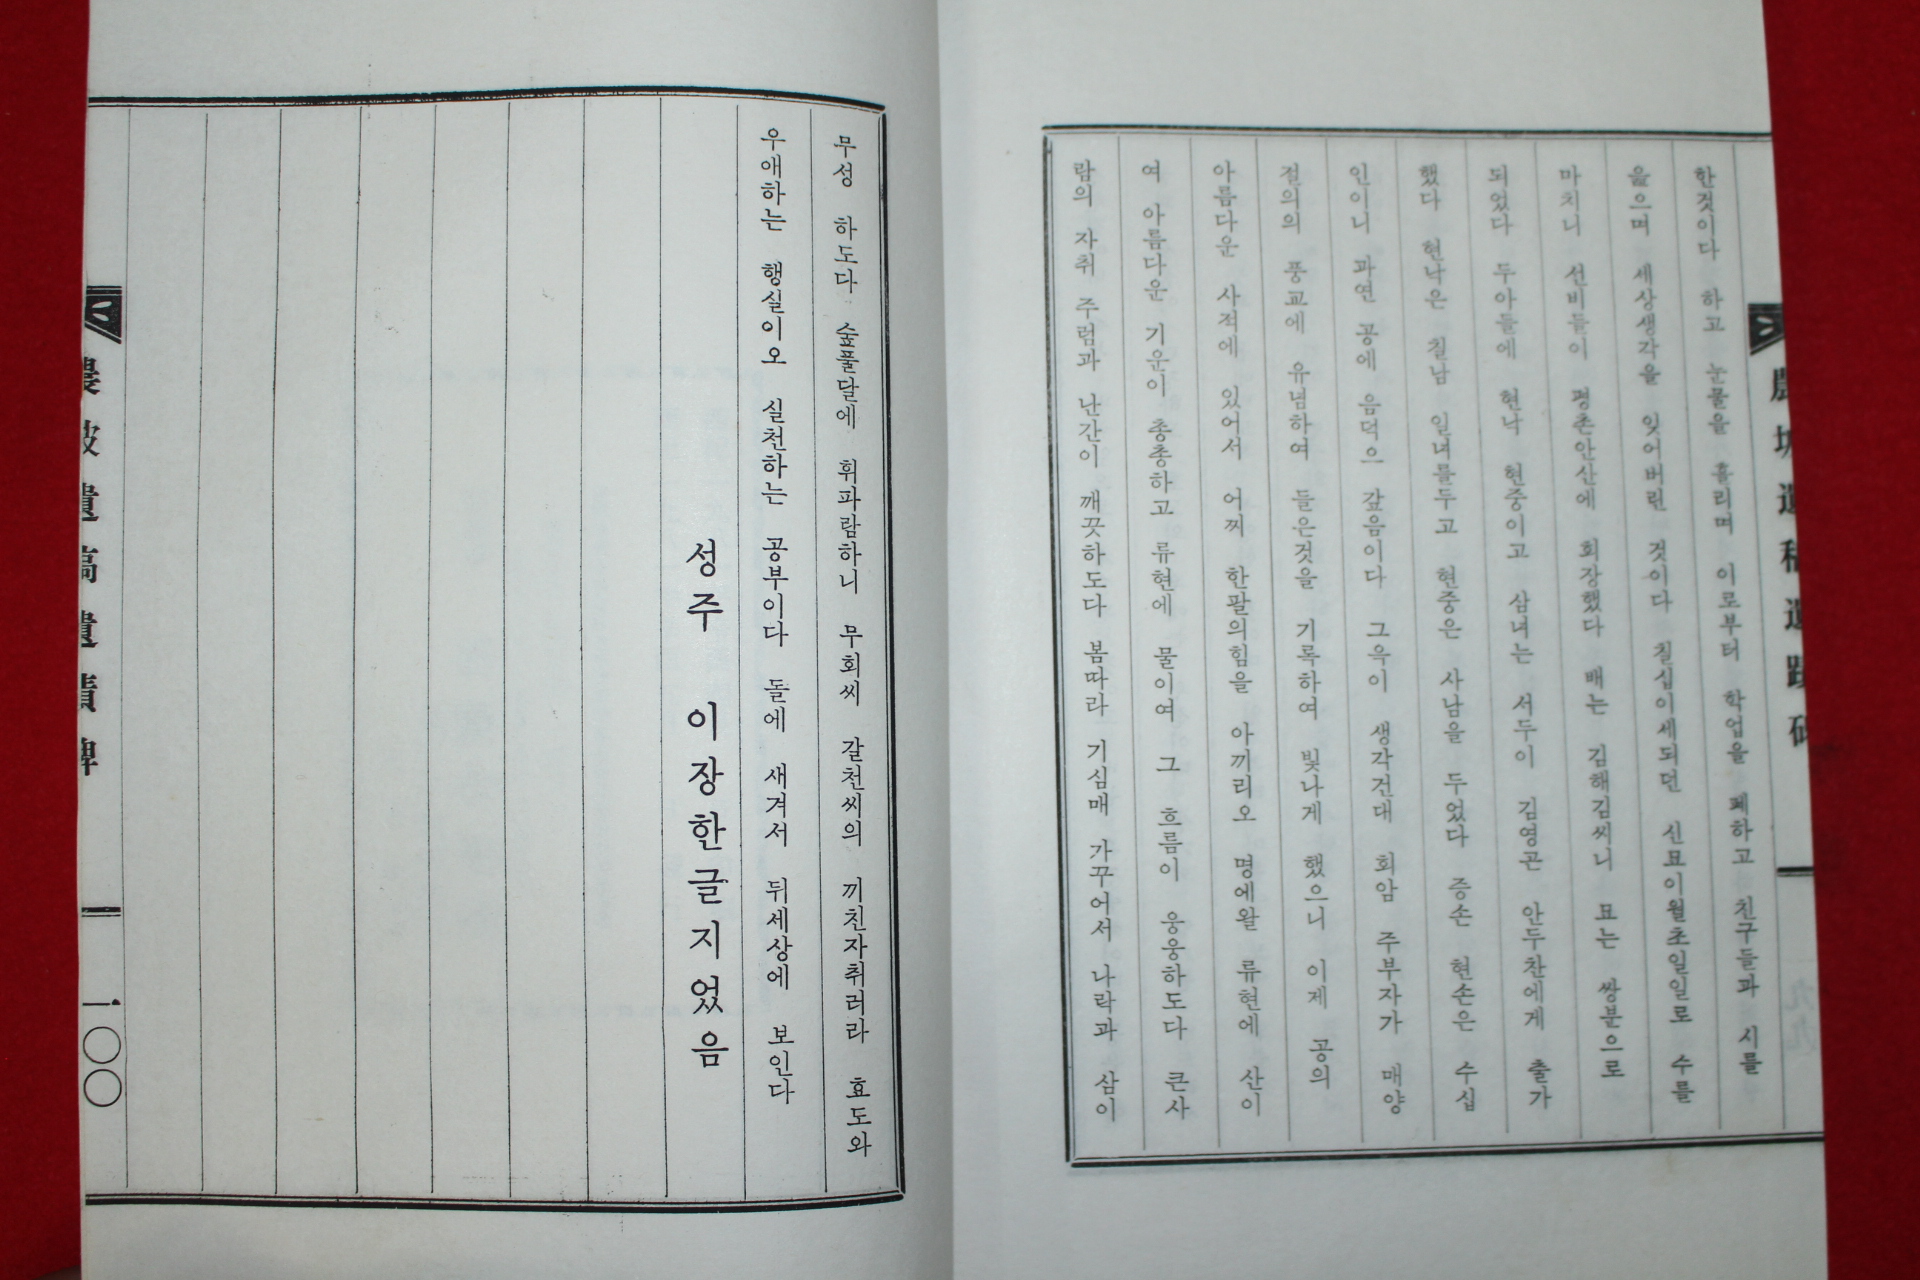 한것이다 하고 눈물을 흘리며 이로부터 학업을 폐하고 친구들과 시를
을으며 세상생각을 잊어버린 것이다 칠십이세되던 신묘이월초일일로 수를
마치니 선비들이 평촌안산에 회장했다 배는 김해김씨니 묘는 쌍분으로
되었다 두아들에 현낙 현중이고 삼녀는 서두이 김영곤 안두찬에게 출가
했다 현낙은 칠남 일녀를두고 현중은 사남을 두었다 증손 현손은 수십
인이니 과연 공에 음덕으 갚음이다 그윽이 생각건대 회암 주부자가 매양
절의의 풍교에 유념하여 들은것을 기록하여 빛나게 했으니 이제 공의
아름다운 사적에 있어서 어찌 한팔의힘을 아끼리오 명에왈 류현에 산이
여 아름다운 기운이 총총하고 류현에 물이여 그 흐름이 웅웅하도다 큰사
람의 자취 주렴과 난간이 깨끗하도다 봄따라 기심매 가꾸어서 나락과 삼이
무성 하도다 숲풀달에 휘파람하니 무회씨 갈천씨의 끼친자취러라 효도와
우애하는 행실이오 실천하는 공부이다 돌에 새겨서 뒤세상에 보인다
성주 이장한글지었음
農坡遺稿遺蹟碑
一〇〇